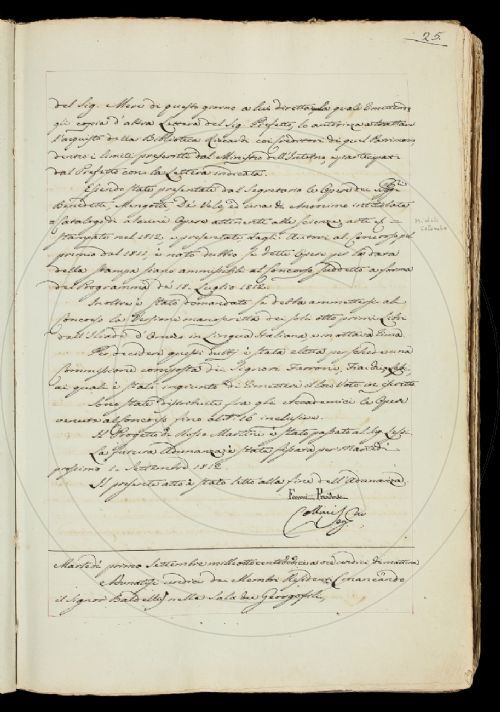 25.
del Sig. Mere di questo giorno a lui diretta, la quale trasmettendo
gli copia d'altra Lettera del Sig. Prefetto, lo autorizza a trattare
l'acquisto della Biblioteca Riccardi coi creditori di quel Patrimonio
dentro i limiti prescritti dal Ministro dell'Interno e partecipati
dal Prefetto con la Lettera indicata.
Essendo state presentate dal Segretario le Opere dei Sigg.ri
Benedetti, Mengotti, De Velo, ed una di Anonimo intitolata
Catalogo di alcune Opere attenenti alle Scienze, arti &
stampate nel 1812, e presentate dagli Autori al Concorso pel
premio dal 1811, è nato dubbio se dette Opere per la data
della stampa siano ammissibili al Concorso suddetto a forma
del Programma de' 18. Luglio 1812.
Michele Colombo
Inoltre è stato domandato se debba ammettersi al
Concorso la Versione manoscritta dei soli otto primi Libri
dell'Iliade d'Omero in Lingua Italiana e in ottava Rima.
Per decidere questi dubbj è stata eletta per schede una
Commissione composta dei Signori Ferroni,
ai quali è stato ingiunto di rimettere il loro Voto in scritto
Sono state distribuite fra gli Accademici le Opere
venute al Concorso fino al N.° 16 inclusive.
Il Progetto di Rosso Martini è stato passato al Sig.
La futura Adunanza è stata fissata per Martedì
prossimo 1.° Settembre 1812.
Il presente atto è stato letto alla fine dell'Adunanza.
Ferroni Presidente
Collini Seg.
Martedì primo Settembre milleottocentododici a ore undici di mattina
Adunatisi undici dei Membri Residenti (mancando
il Signor Baldelli) nella Sala dei Georgofili,